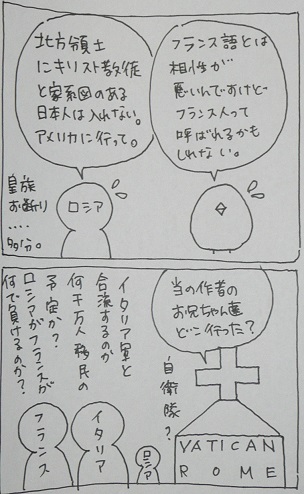 フランス語とは
相性が
悪いんですけど
フランス人って
呼ばれるかも
しれない。
地方領土
にキリスト教徒
と家系図のある
日本人は入れない。
アメリカに行って。
皇族
お断り
....
多分。
ロシア
当の作者の
お兄ちゃん達
どこ行った?
自衛隊?
VATICAN
ROME
イタリア軍と
合流するのか
何千万人移民の
予定か?
ロシアがフランスが
何で負けるのか?
ロシア
イタリア
フランス